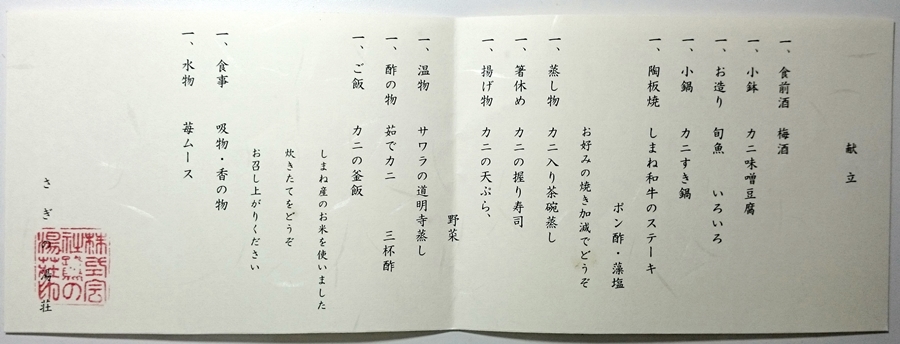 献立
一、食前酒 梅酒
一、小鉢 カニ味噌豆腐
一、お造り 旬魚 いろいろ
一、小鍋 カニすき鍋
一、陶板焼 しまね和牛のステーキ
ポン酢・藻塩
お好みの焼き加減でどうぞ
一、蒸し物 カニ入り茶碗蒸し
一、箸休め カニの握り寿司
一、揚げ物 カニの天ぷら、
野菜
一、温物 サワラの道明寺蒸し
一、酢の物 茹でカニ 三杯酢
一、ご飯 カニの釜飯
しまね産のお米を使いました
炊きたてをどうぞ
お召し上がりください
一、食事 吸物・香の物
一、水物 苺ムース
さぎの湯荘
株式会
社鷺の
湯荘印